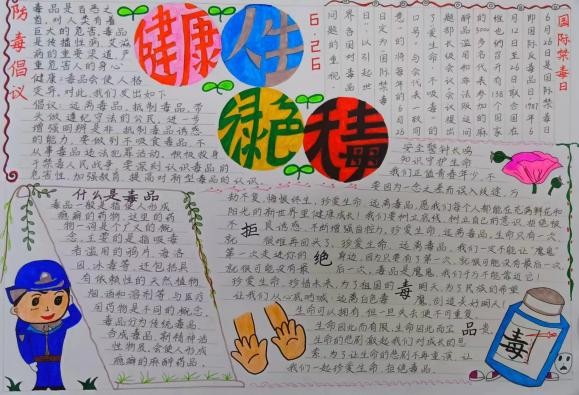 防毒倡议
毒品是百恶之
首,对人类有着
巨大的危害,毒品
是传播性病,艾滋
病的重要渠道,严
重危害人的身心
健康:毒品会使人格
变异,对此,我们发出如下
倡议:远离毒品,抵制毒品,带
头做遵纪守法的公民,进一步
增强回辨是非、抵制毒品诱惑
的能力,要做到不吸食毒品,不
从事毒品违法犯罪活动,积极投身
于禁毒人民战争,要深刻认识毒品的
危害性,加强教育,提高对新型毒品的认识。
健康人生
绿色无毒
6.26
国际禁毒日
6月26日是国际禁毒
日即国际反毒品日1987年6
月12日至26日联合国在
维也纳召开由138个国家
的3000多名代表参加的麻
醉品滥用和非法贩运问
题部长级会议会议提出
了"爱生命,不吸毒"的
口号,与会代表一致同
意将每年的6月26
日定为国际禁毒
日,以引起世
界各国对毒品
问题的重视
安全警钟长鸣
知识守护生命
我们正值青春年少,不
要因为一念之差而误入歧途,万
劫不复,悔恨终生,珍爱生命,远离毒品,愿我们每个人都能在充满鲜花和
阳光的新世界里健康成长!我们要树立底线,树立自己的意识,拒绝极
不良诱惑,不断增强自控力,珍爱生命,远离毒品,生命只有一次,
就很难再回头了,珍爱生命,远离毒品,我们一定不能让"魔鬼"
第一次走近你的身边,因为只要有了第一次,就很可能没有最后一次,
就很可能没有最后一次,毒品是魔鬼,我们千万不能靠近它!
珍爱生命,珍惜未来,为了祖国的明天,为了民族的希望
让我们从心底呐喊:远离白色毒魔,创造美好明天!
生命可以拥有,但一旦失去便不可重复
生命因此而有限,生命因此而宝贵,
生命的悲剧激起我们对成长的思
索,为了让生命的悲剧不再重演,让
我们一起珍爱生命,拒绝毒品。
拒绝毒品
什么是毒品
毒品一般是指使人形成
瘾癖的药物,这里的药
物一词是个广义的概
念,主要的是指吸毒
者滥用的鸦片,海洛
因,冰毒等,还包括具
有依赖性的天然植物,
烟,酒和溶剂等,与医疗
用药物是不同的概念,
毒品分为传统毒品
合成毒品,新精神活
性物质,会使人形成
瘾癖的麻醉药品,
毒